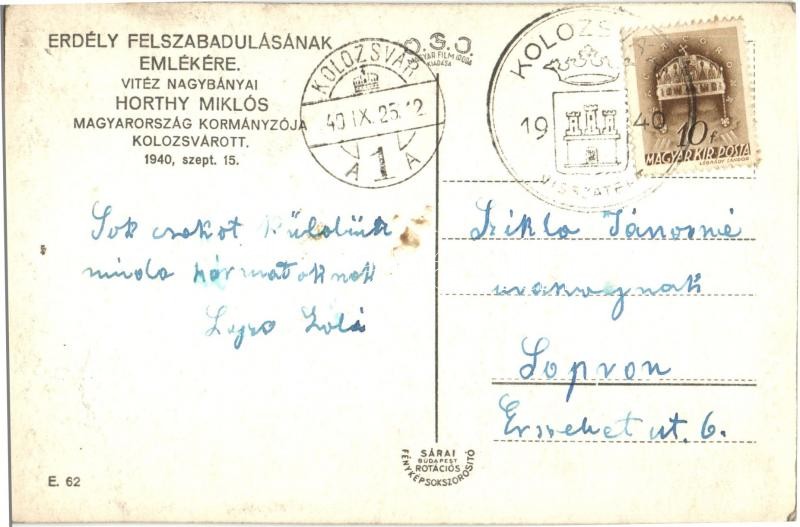 ERDÉLY FELSZABADULÁSÁNAK
EMLÉKÉRE.
VITÉZ NAGYBÁNYAI
HORTHY MIKLÓS
MAGYARORSZÁG KORMÁNYZÓJA
KOLOZSVÁROTT.
1940, szept. 15.
KOLOZSVÁR
40 IX. 25. 12
A 1 A
O.G.J.
MAGYAR FILM IRODA
KIADÁSA
KOLOZS
19 40
VISSZATÉR
10 f
MAGYAR KIR. POSTA
LÉGRÁDY SÁNDOR
Sok csokot küldünk
mindahármatoknak
Zola
Szikla Jánosné
urasszonynak
Sopron
Erzsebet ut. 6.
SÁRAI
BUDAPEST
ROTÁCIÓS
FÉNYKÉPSOKSZOROSITÓ
E. 62